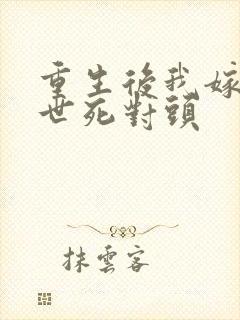 重生後我嫁
世死對頭
抹雲客